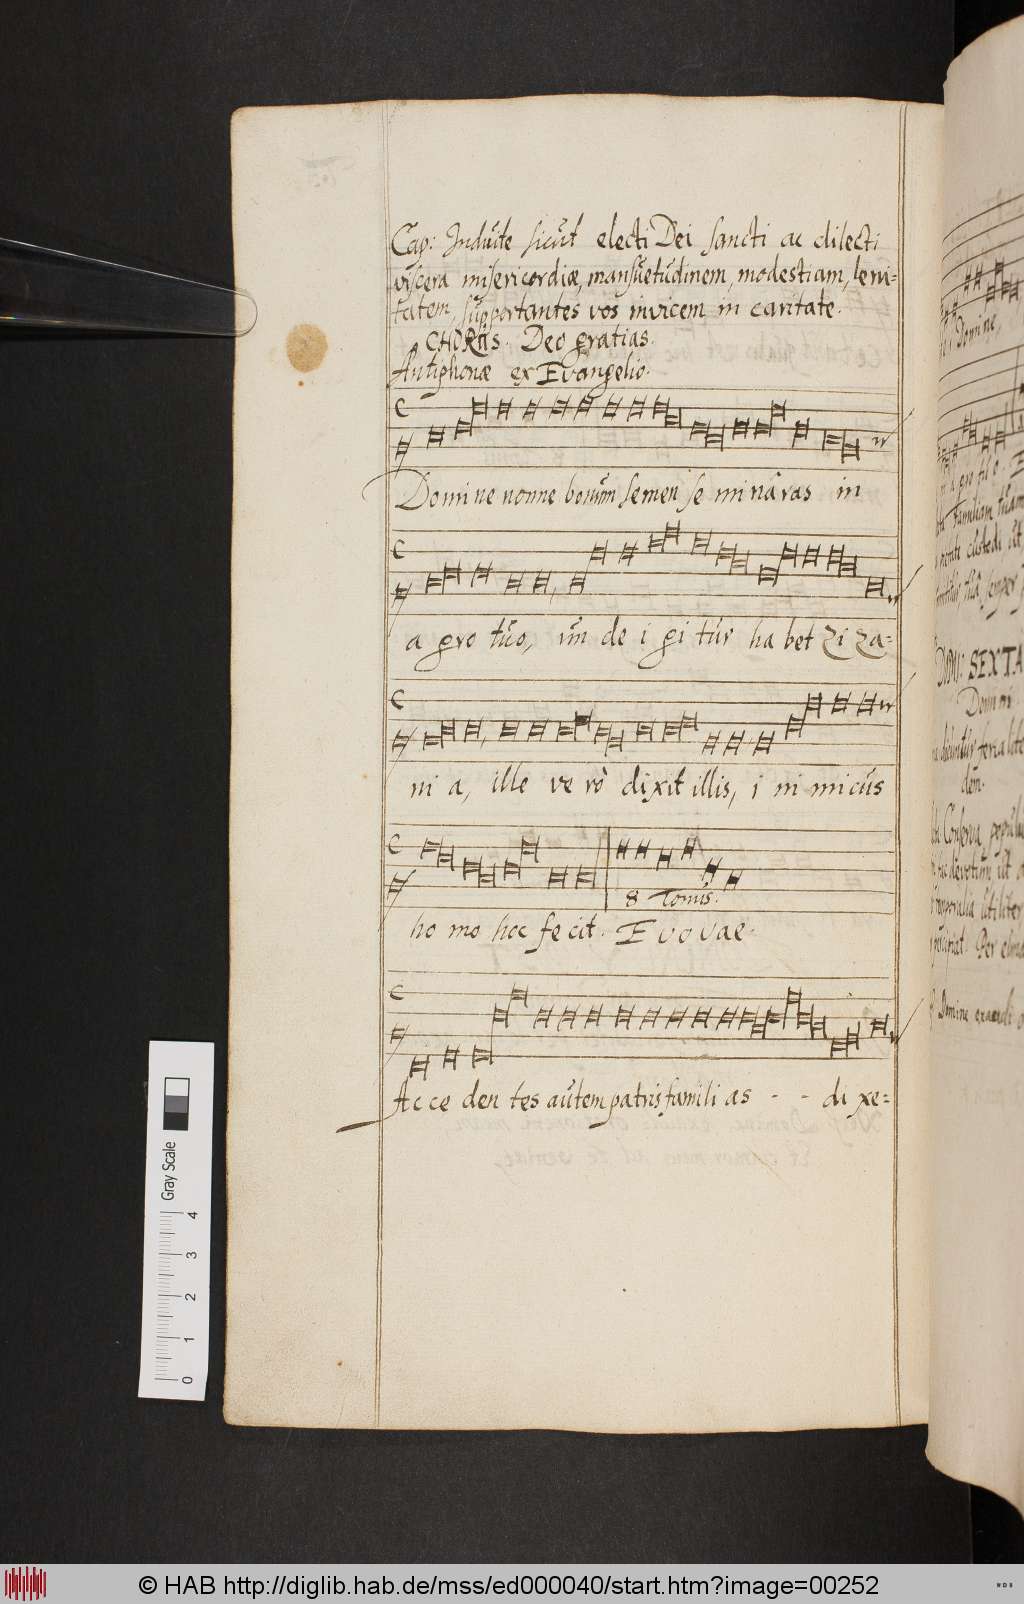 Cap: Induite sicut electi Dei sancti ac dilecti
viscera misericordiæ, mansuetudinem, modestiam, leni=
tatem, supportantes vos invicem in caritate.
CHORUS. Deo gratias.
Antiphonæ ex Evangelio.
Domine nonne bonum semen se mi nâ ras in
a gro tuo, un de i gi tur ha bet Zi Za=
ni a, ille ve rò dixit illis, i ni micus
ho mo hoc fe cit. E v o v a e.
8 Tonus.
Acce den tes autem patris famili as - - di xe=
Domine,
DOM: SEXTA
Domini
dem.
Conserva
Per
Domine exaudi
Gray Scale
0 1 2 3 4
© HAB http://diglib.hab.de/mss/ed000040/start.htm?image=00252